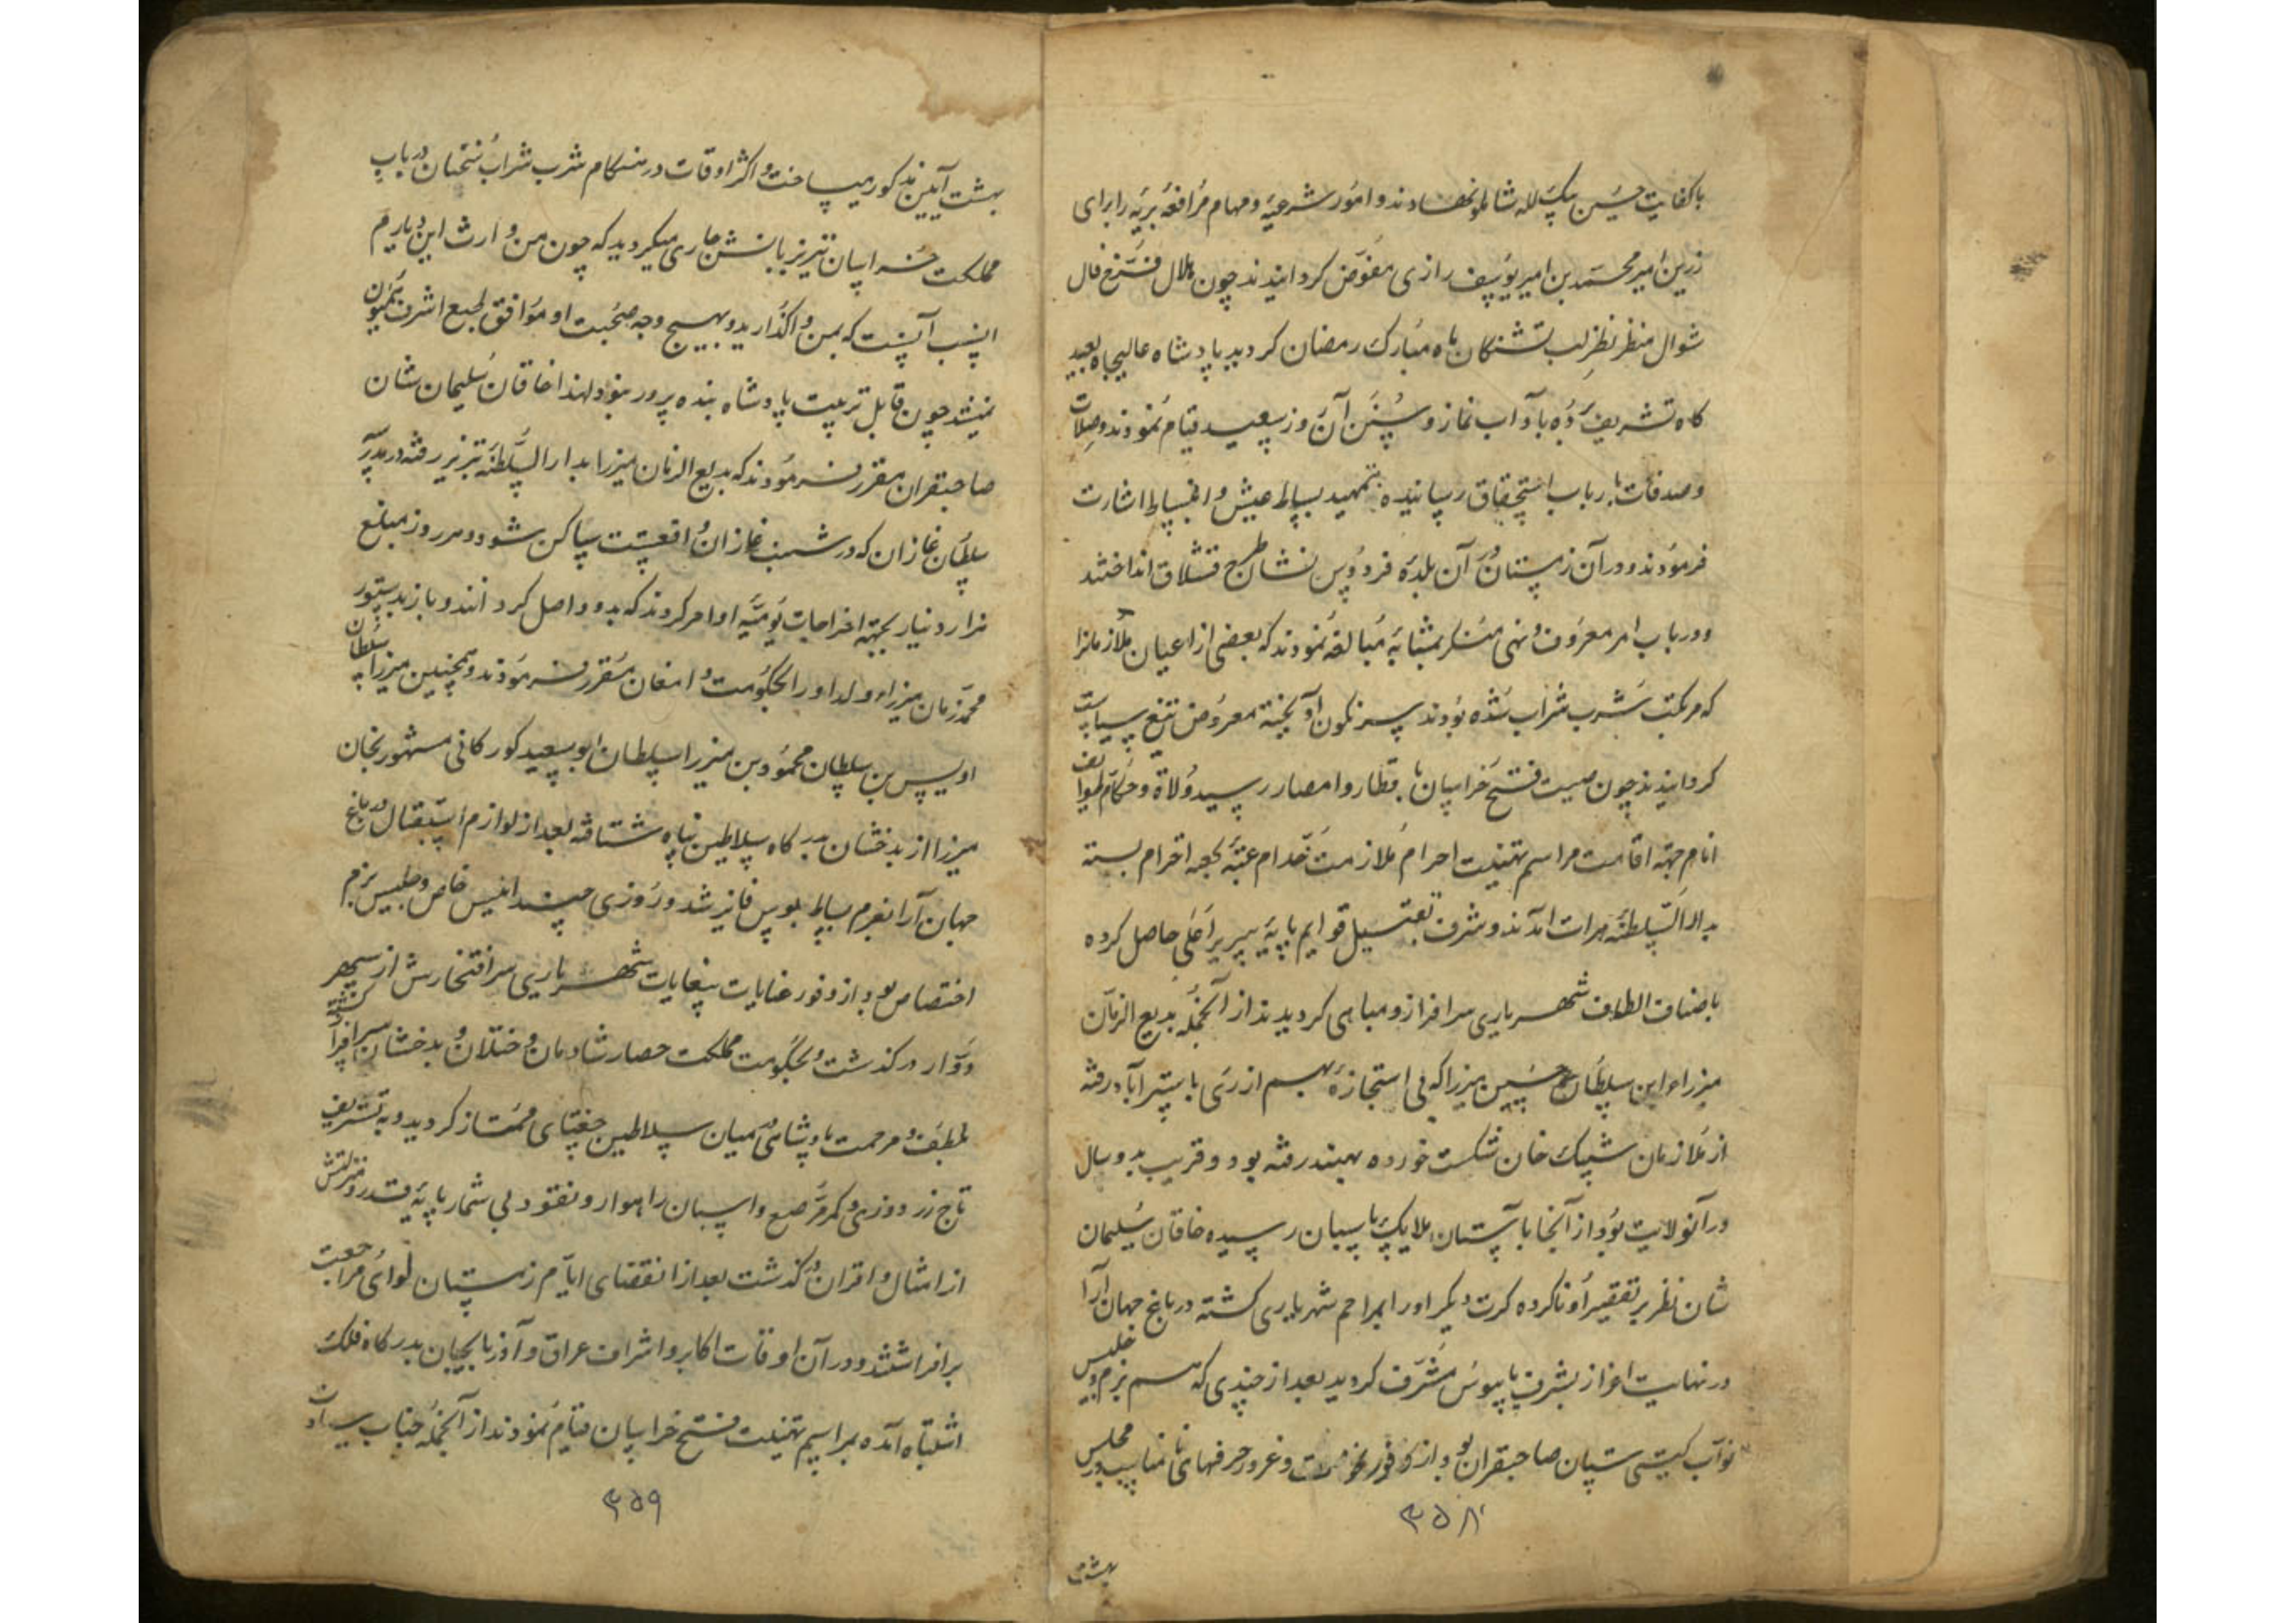 باکفایت حسین بیک لله شاملو نهادند و امور شرعیه و مهام مرافعه بریّه را برای
زرین امیر محمد بن امیر یوسف رازی مفوّض کردانیدند چون هلال فرّخ فال
شوال منظر نظر لب تشنکان ماه مبارک رمضان کردید پادشاه عالیجاه بعید
کاه تشریف برده باداب نماز و سنن آن روز سعید قیام نمودند و صلات
و صدقات بارباب استحقاق رسانیده بتمهید بساط عیش و انبساط اشارت
فرمودند و در آن زمستان در آن بلده فردوس نشان طرح قشلاق انداختند
و در باب امر معروف و نهی منکر بمثابه مبالغه نمودند که بعضی از اعیان ملازمانرا
که مرتکب شرب شراب شده بودند سرنکون آویخته معروض تیغ سیاست
کردانیدند چون صیت فتح خراسان باقطار و امصار رسید ولاة و حکام طوایف
انام جهة اقامت مراسم تهنیت احرام ملازمت خدام عتبه کعبه احترام بسته
بدار السلطنه هرات آمدند و شرف تقبیل قوایم پایه سریر اعلی حاصل کرده
باصناف الطاف شهریاری سرافراز و مباهی کردیدند از آنجمله بدیع الزمان
میرزاء ابن سلطان حسین میرزا که بی استجازه بهم از ری باستراباد رفته
از ملازمان شیبک خان شکست خورده بهند رفته بود و قریب بدو سال
در آنولایت بود از آنجا باستان ملایک پاسبان رسیده خاقان سلیمان
شان نظر بر تقصیر او ناکرده کرت دیکر او را بمراحم شهریاری کشته در باغ جهان آرا
در نهایت اعزاز بشرف پایبوس مشرّف کردید بعد از چندی که هم بزم و جلیس
نواب کیتی ستان صاحبقران بود از وفور نخوت و غرور حرفهای نامناسب در مجلس
۳۵۸
بهشت
بهشت آیین مذکور میساخت و اکثر اوقات در هنکام شرب شراب سخنان در باب
مملکت خراسان نیز بر زبانش جاری میکردید که چون من وارث این دیارم
انسب آنست که بمن واکذارید و بهیچ وجه صحبت او موافق طبع اشرف همیون
نمیشد چون قابل تربیت پادشاه بنده پرور نبود لهذا خاقان سلیمان شان
صاحبقران مقرر فرمودند که بدیع الزمان میرزا بدار السلطنه تبریز رفته در مدرسه
سلطان غازان که در شنب غازان واقعست ساکن شود و هر روز مبلغ
هزار دینار بجهة اخراجات یومیّه او امر کردند که بدو واصل کردانند و باز بدستور
محمد زمان میرزاء ولد او را بحکومت دامغان مقرر فرمودند و همچنین میرزا سلطان
اویس بن سلطان محمود بن میرزا سلطان ابو سعید کورکانی مشهور بخان
میرزا از بدخشان بدرکاه سلاطین پناه شتافته بعد از لوازم استقبال در باغ
جهان آرا بعزم بساط بوس فایز شد و روزی چند انیس خاص و جلیس بزم
اختصاص بود از وفور عنایات بیغایات شهریاری سر افتخارش از سپهر
دوّار درکذشت و بحکومت مملکت حصار شادمان و ختلان و بدخشان سرافراز کشته
بلطف و مرحمت پادشاهی میان سلاطین جغتای ممتاز کردید و به تشریف
تاج زر دوزی و کمر مرصع و اسبان راهوار و نقود بی شمار پایه قدر و منزلتش
از امثال و اقران درکذشت بعد از انقضای ایام زمستان لوای مراجعت
برافراشتند و در آن اوقات اکابر و اشراف عراق و آذربایجان بدرکاه فلک
اشتباه آمده بمراسم تهنیت فتح خراسان قیام نمودند از آنجمله جناب سیادت
۳۵۹